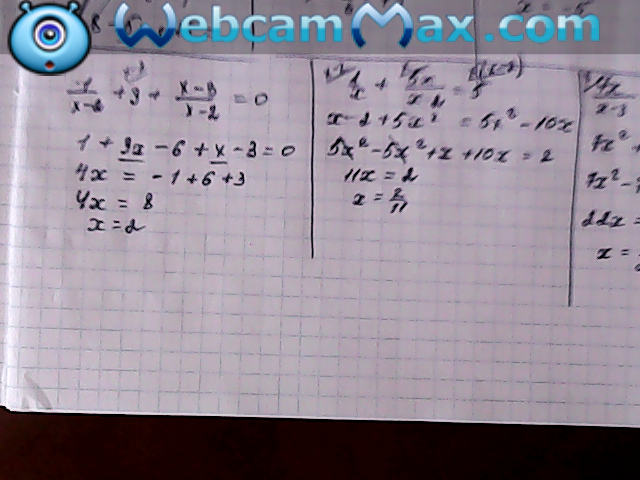 WebcamMax.com
x = -5
1/(x-2) + 3 + (x-3)/(x-2) = 0
1 + 3x - 6 + x - 3 = 0
4x = -1 + 6 + 3
4x = 8
x = 2
1/x + 5x/(x-2) = 5
x - 2 + 5x² = 5x² - 10x
5x² - 5x² + x + 10x = 2
11x = 2
x = 2/11
x-3
7x² +
7x² -
22x =
x =